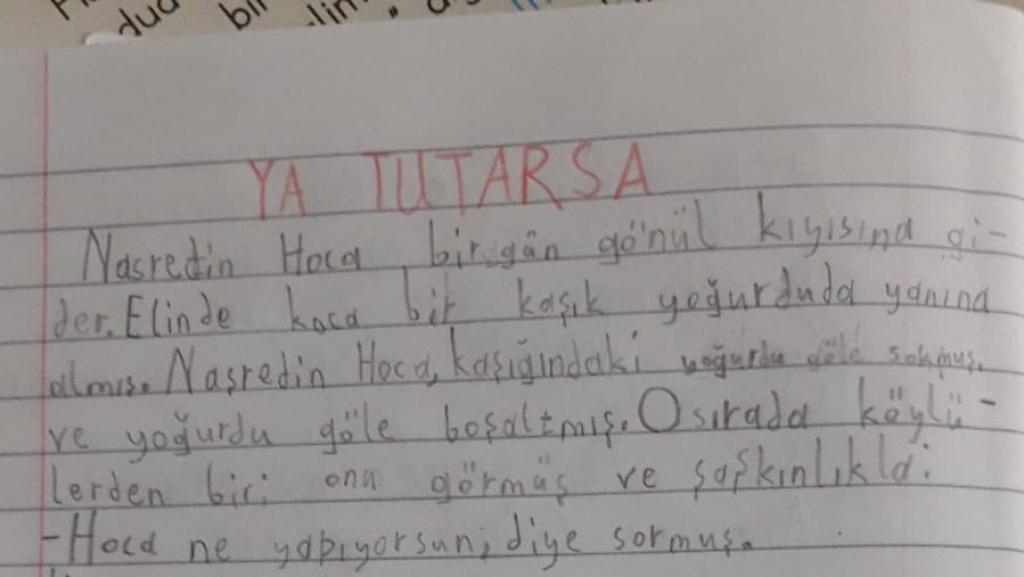 YA TUTARSA
Nasredin Hoca bir gün gö'nül kıyısına gi-
der. Elinde koca bir kaşık yoğurduda yanına
almış. Nasredin Hoca, kaşığındaki yoğurdu göle sokmuş.
ve yoğurdu göle boşaltmış. O sırada köylü-
lerden biri onu görmüş ve şaşkınlıkla:
-Hoca ne yapıyorsun, diye sormuş.